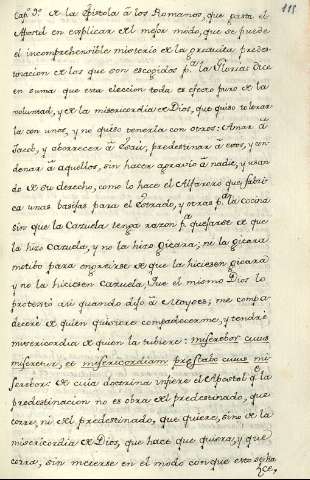 115
Cap. 9. de la Epistola â los Romanos, que gasta el
Apostol en explicar del mejor modo, que se puede
el incomprehensible misterio de la gratuita predes-
tinacion de los que son escogidos pa. la Gloria: Dice
en suma que esta eleccion toda es efecto puro de la
voluntad, y de la misericordia de Dios, que quiso tener
la con unos, y no quiso tenerla con otros: Amar â
Jacob, y aborrecer â Esaú, predestinar â estos, y con-
denar â aquellos, sin hacer agravio â nadie, y usan
do de su derecho, como lo hace el Alfarero que fabri-
ca unas basijas para el Estrado, y otras pa. la cocina
sin que la Cazuela tenga razon pa. quejarse de que
la hizo Cazuela, y no la hizo gicara; ni la gicara
motibo para engreirse de que la hiciesen gicara
y no la hiciesen cazuela, Que el mismo Dios lo
protestó asi quando dijo â Moyses; me compa-
deceré de quien quisiere compadecerme, y tendré
misericordia de quien la tubiere: miserebor cuius
misereor, et misericordiam prestabo cuius mi-
serebor: de cuia doctrina infiere el Apostol qe. la
predestinacion no es obra del predestinado, que
corre, ni del predestinado, que quiere, sino de la
misericordia de Dios, que hace que quiera, y que
corra, sin meterse en el modo con que esto se ha
ce,